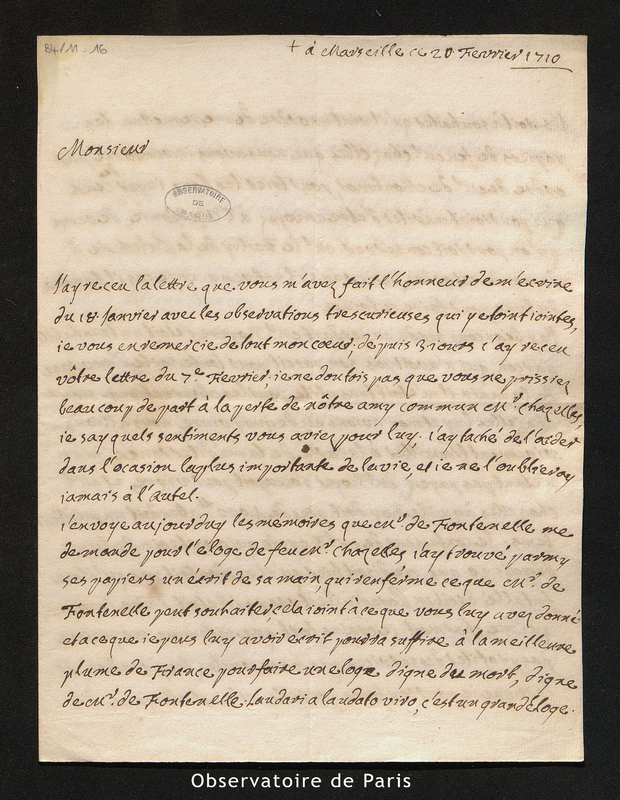 B4/11-16
+ à Marseille ce 20 Fevrier 1710
Monsieur
OBSERVATOIRE
DE
PARIS
J'ay receu la lettre que vous m'avez fait l'honneur de m'ecrire
du 18 Janvier avec les observations trescurieuses qui y etoint iointes,
ie vous en remercie de tout mon cœur; dépuis 3 iours i'ay receu
vôtre lettre du 7e Fevrier. ie ne doutois pas que vous ne prissiez
beaucoup de part à la perte de nôtre amy commun Mr. Chazelles,
ie say quels sentiments vous aviez pour luy. i'ay taché de l'aider
dans l'ocasion la plus importante de la vie, et ie ne l'oublieray
iamais à l'Autel.
i'envoye aujourduy les mémoires que Mr. de Fontenelle me
demande pour l'éloge de feu Mr. Chazelles i'ay trouvé parmy
ses papiers un écrit de sa main, qui renférme ce que Mr. de
Fontenelle peut souhaiter, céla ioint à ce que vous luy avez donné
et a ce que ie peus luy avoir écrit pourra suffire à la meilleure
plume de France pour faire un eloge digne du mort, digne
de Mr. de Fontenelle. Laudari a laudato viro, c'est un grand éloge.
Observatoire de Paris